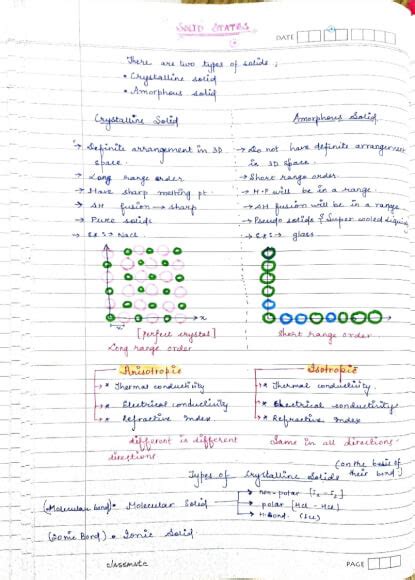 SOLID STATES
DATE
There are two types of solids ;
• Crystalline solid
• Amorphous solid
Crystalline Solid
Amorphous Solid
→ Definite arrangement in 3D space.
→ Do not have definite arrangement in 3D space.
→ Long range order
→ Short range order.
→ Have sharp melting pt.
→ M.P will be in a range.
→ ΔH fusion → sharp
→ ΔH fusion will be in a range
→ Pure solids
→ Pseudo solids / Super cooled liquid
→ Ex:→ NaCl
→ Ex:→ glass
x
[Perfect crystal]
Long range order
Short range order
Anisotropic
Isotropic
→ * Thermal conductivity
→ * Thermal conductivity.
→ * Electrical conductivity
→ * Electrical conductivity
→ * Refractive Index.
→ * Refractive Index
different in different directions
Same in all directions.
Types of Crystalline Solids (on the basis of their bond)
(Molecular bond) • Molecular Solid
→ non-polar [I₂ - I₂]
→ polar [HCl - HCl]
→ H-Bond. (Ice)
(Ionic Bond) • Ionic Solid.
classmate
PAGE